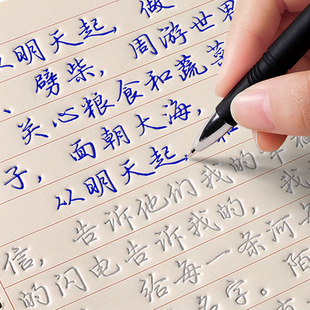 从明天起，做
、劈柴，周游世界
关心粮食和蔬菜
子，面朝大海，
从明天起，和
信，告诉他们我的幸福
的闪电告诉我的，我
给每一条河每
名字。陌